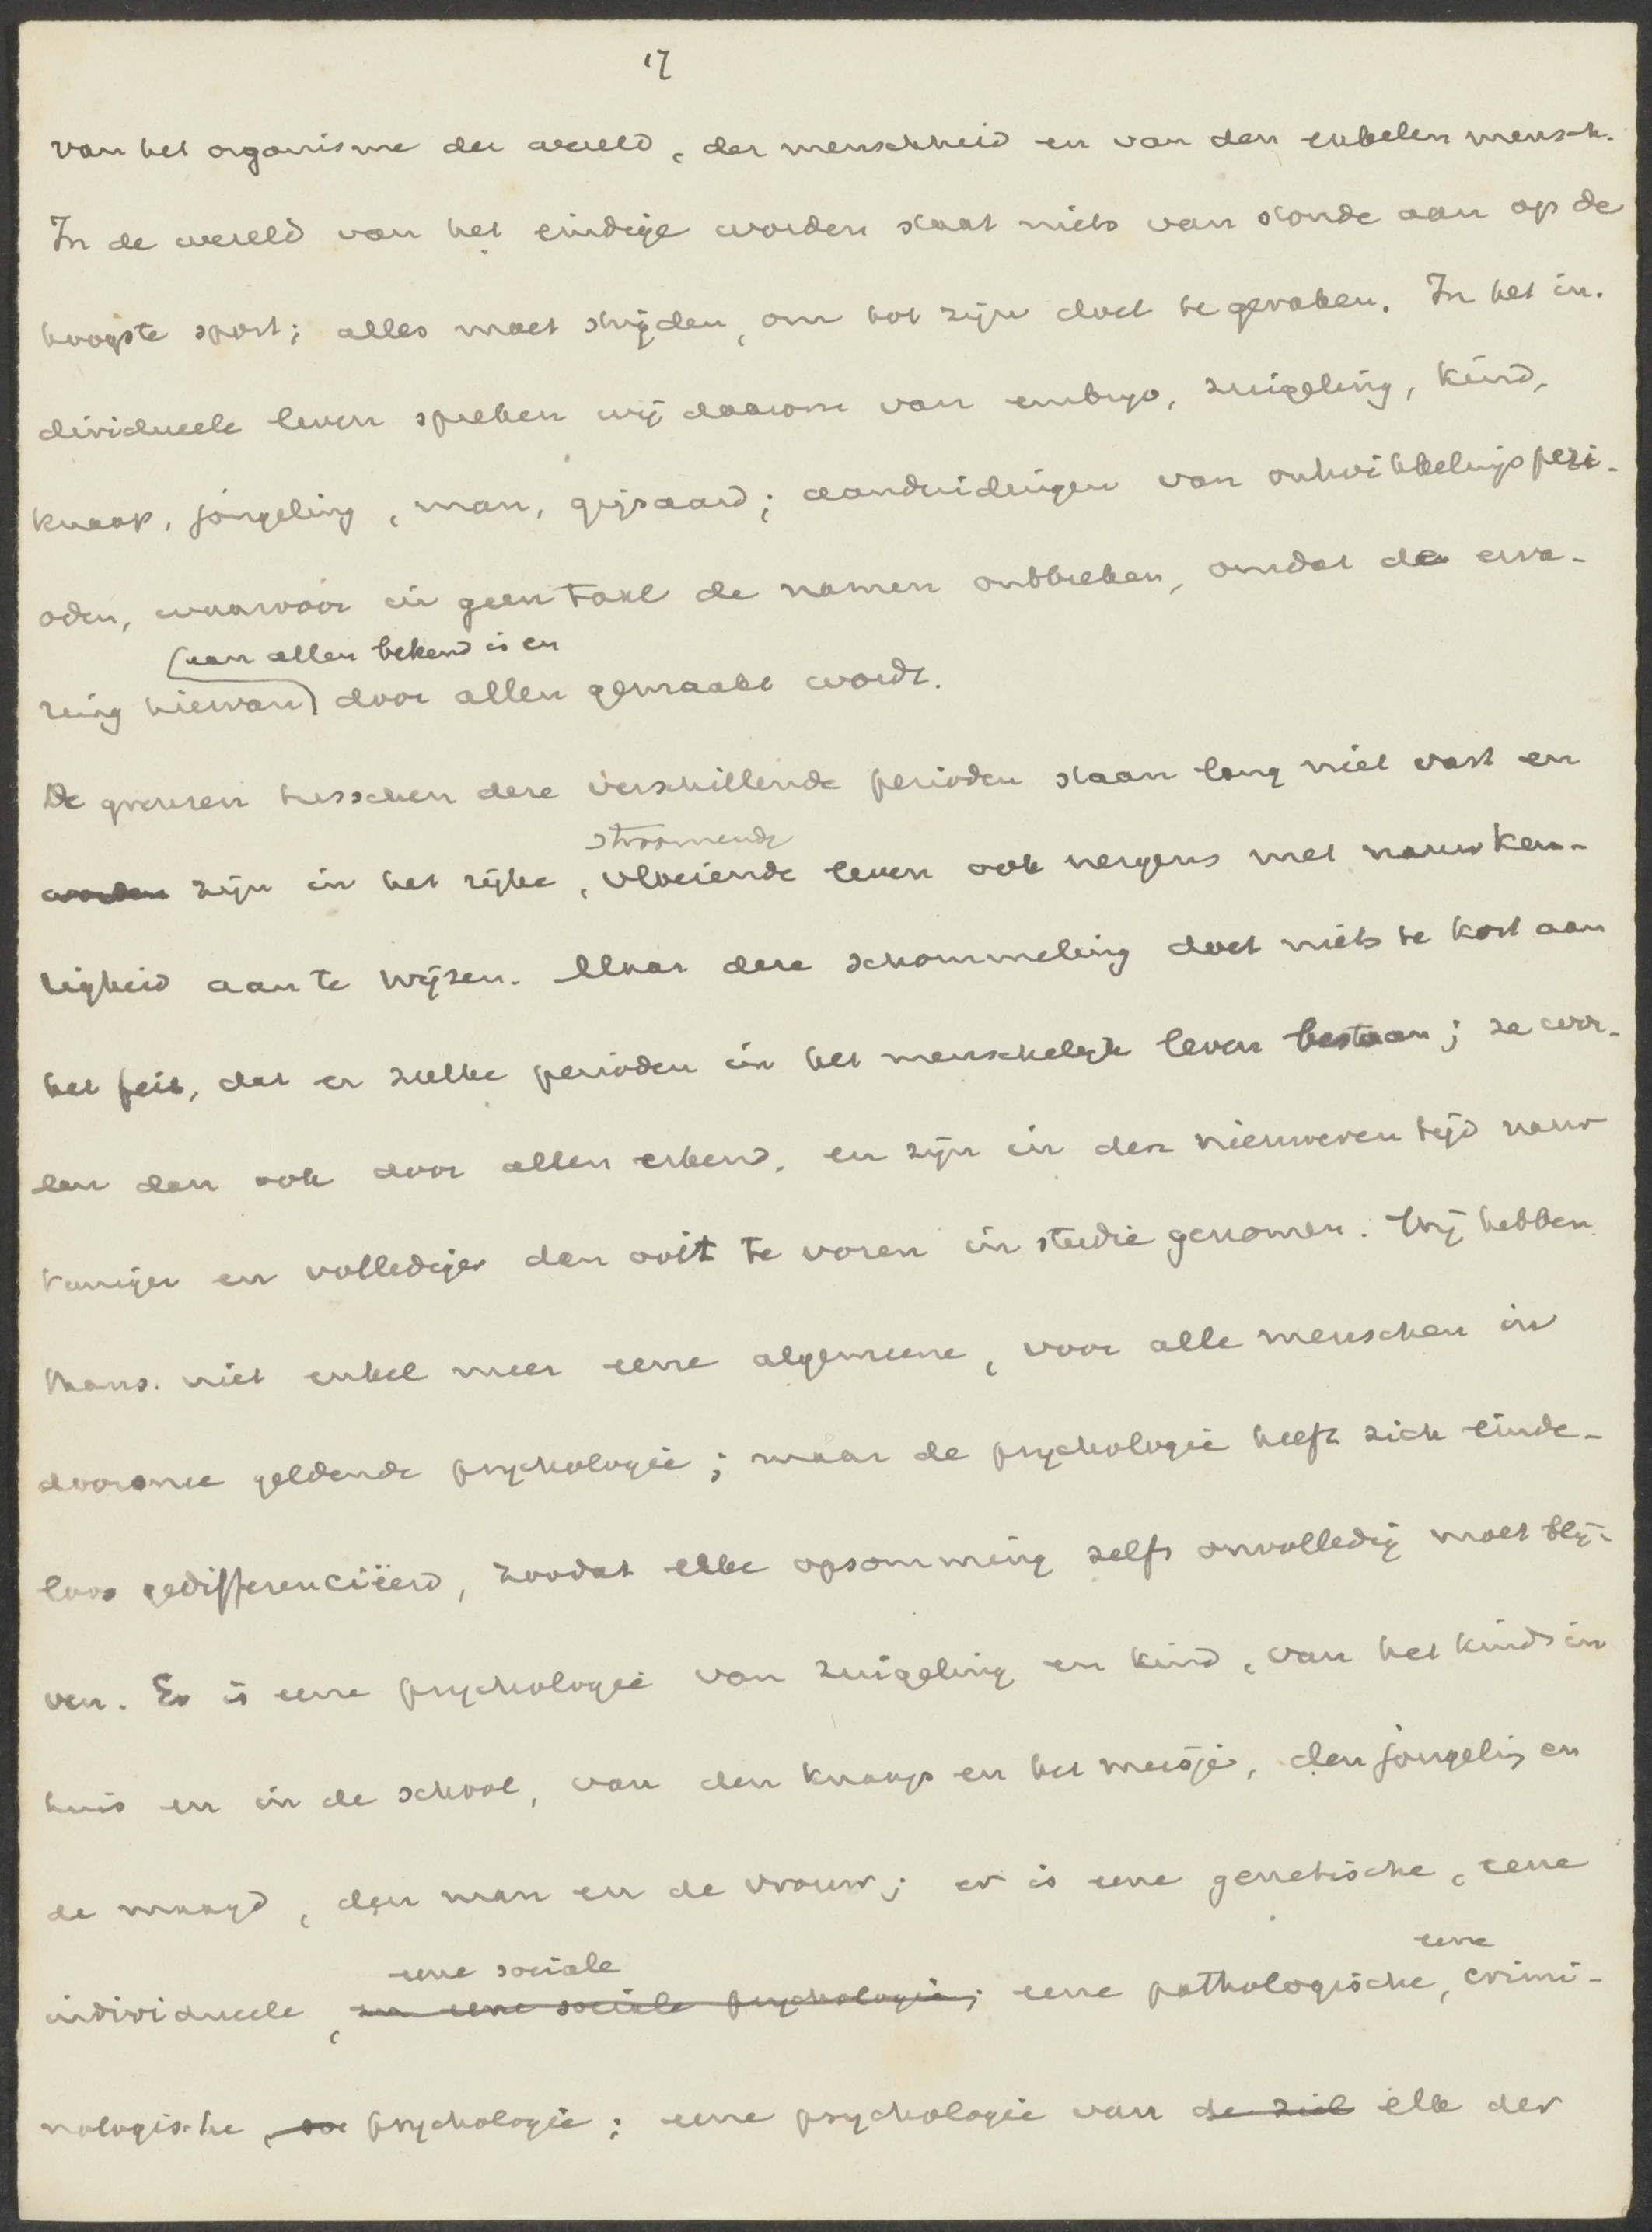 17
van het organisme der wereld, der menschheid en van den enkelen mensch.
In de wereld van het eindige worden staat niets van stonde aan op de
hoogste sport; alles moet strijden, om tot zijn doel te geraken. In het in-
dividueele leven spreken wij daarom van embryo, zuigeling, kind,
knaap, jongeling, man, grijsaard; aanduidingen van ontwikkelingsperi-
oden, waarvoor in geen taal de namen ontbreken, omdat de erva-
(aan allen bekend is en
ring hiervan) door allen gemaakt wordt.
De grenzen tusschen deze verschillende perioden staan lang niet vast en
stroomende
worden zijn in het rijke, vloeiende leven ook nergens met nauwkeu-
righeid aan te wijzen. Maar deze schommeling doet niets te kort aan
het feit, dat er zulke perioden in het menschelijk leven bestaan; ze wor-
den dan ook door allen erkend, en zijn in den nieuweren tijd nauw
keuriger en vollediger dan ooit te voren in studie genomen. Wij hebben
thans niet enkel meer eene algemeene, voor alle menschen in
doorsnee geldende psychologie; maar de psychologie heeft zich einde-
loos gedifferenciëerd, zoodat elke opsomming zelfs onvolledig moet blij-
ven. Er is eene psychologie van zuigeling en kind, van het kind in
huis en in de school, van den knaap en het meisje, den jongeling en
de maagd, den man en de vrouw; er is eene genetische, eene
eene sociale eene
individueele, en eene sociale psychologie; eene pathologische, crimi-
nologische, psychologie; eene psychologie van de ziel elk der